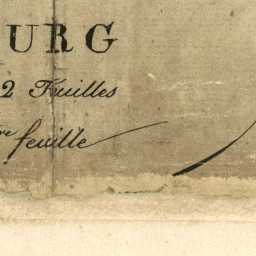 URG
2 Feuilles
re feuille